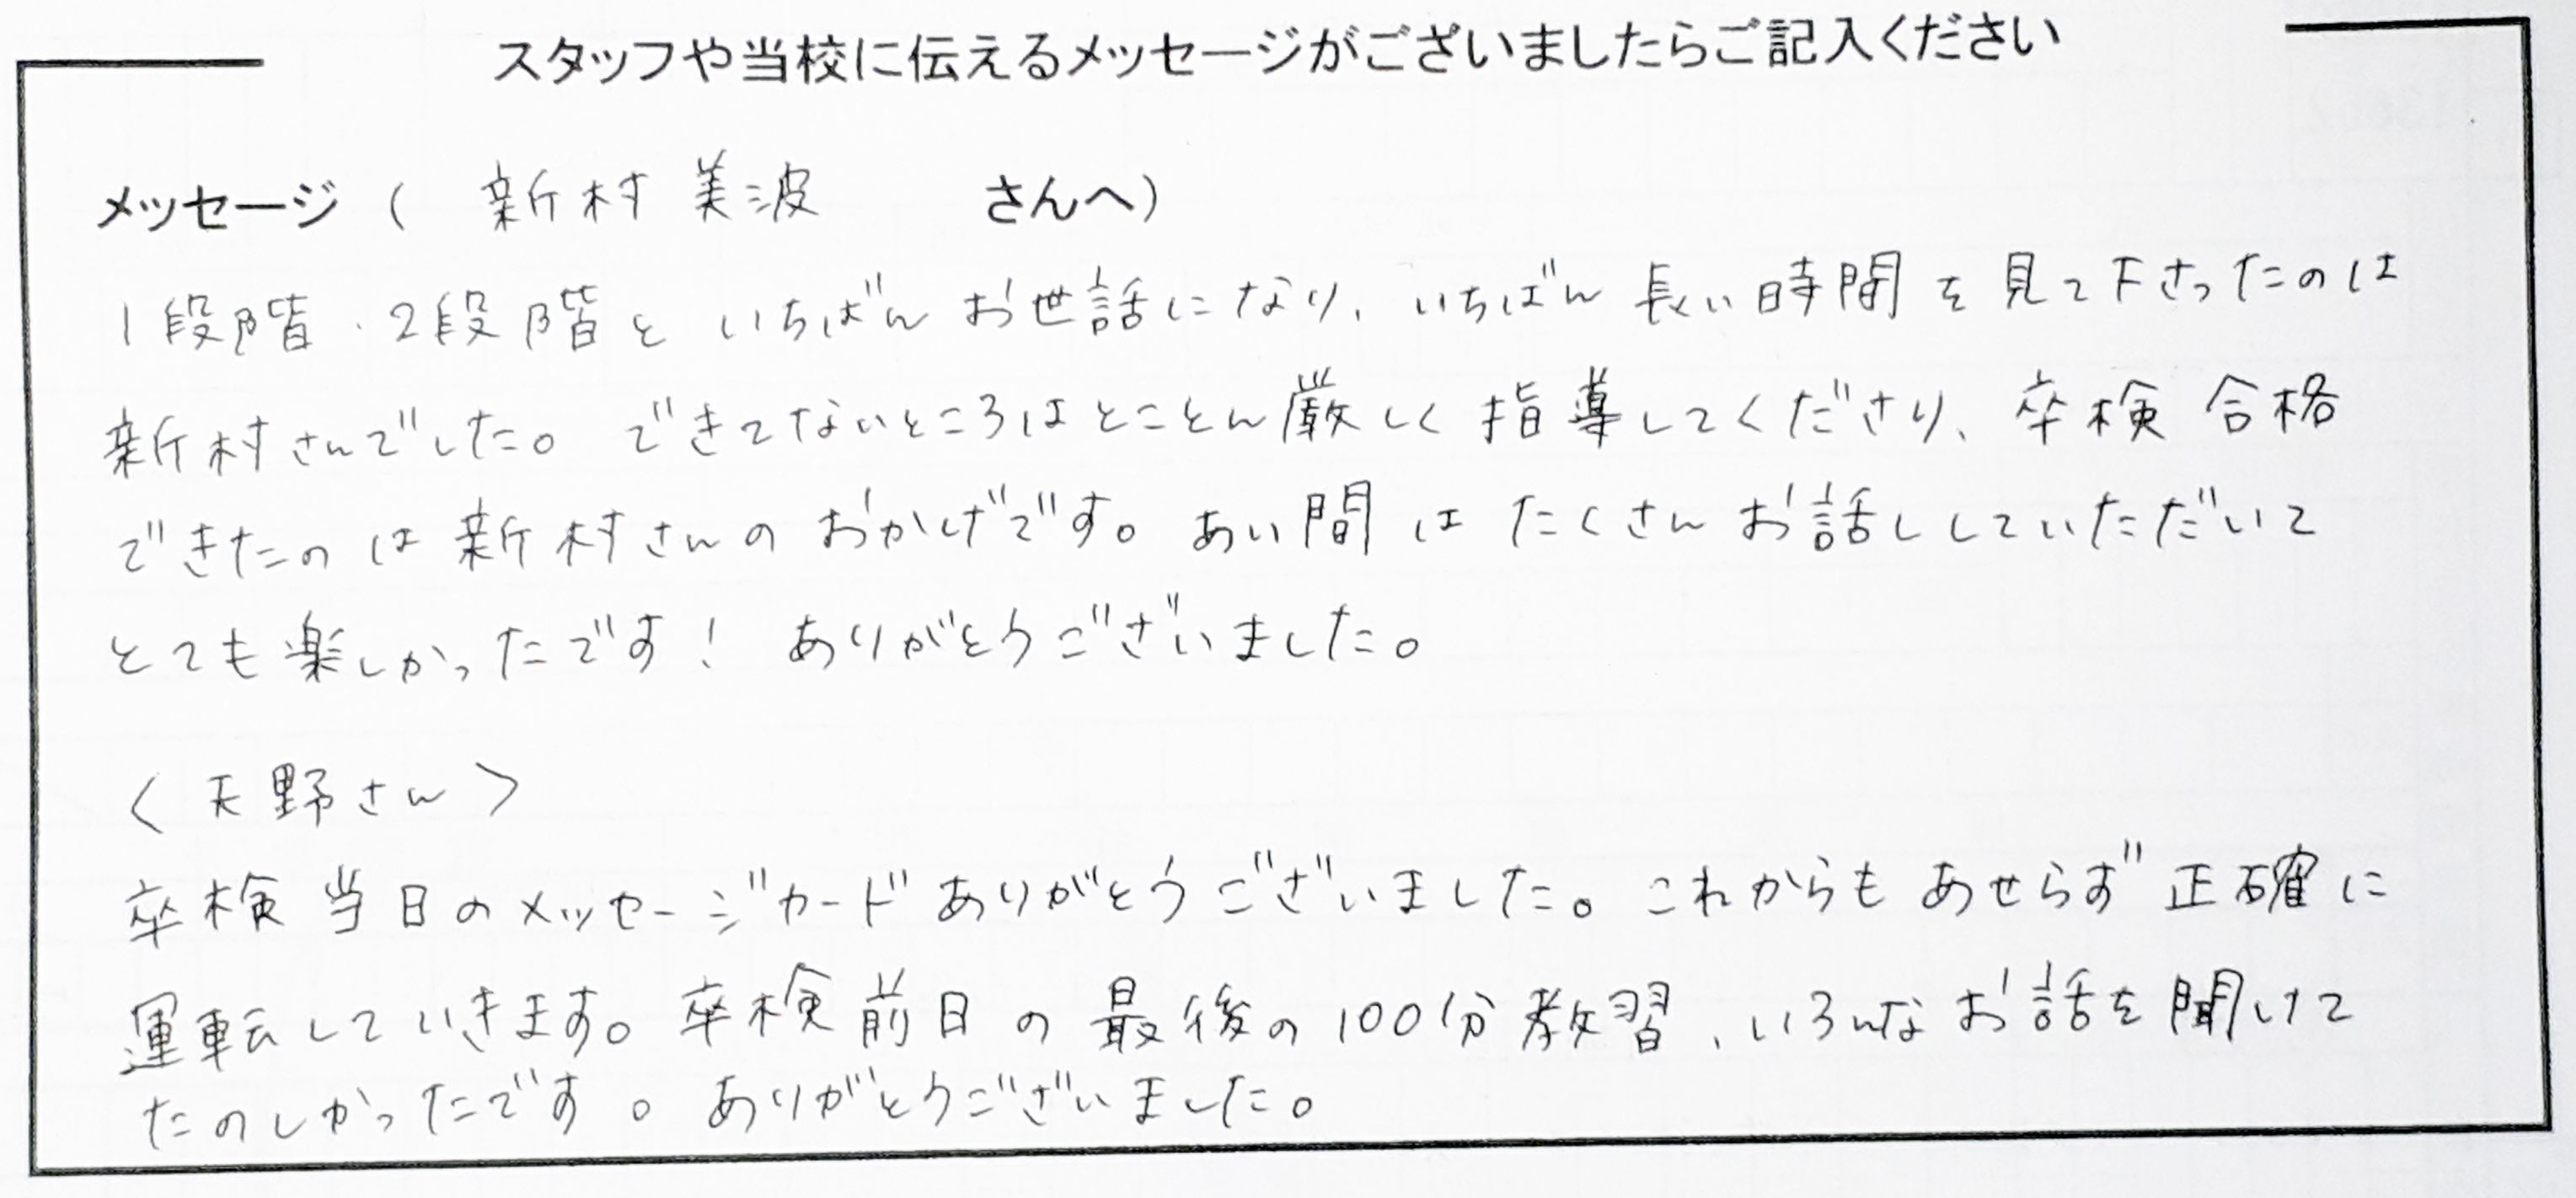 スタッフや当校に伝えるメッセージがございましたらご記入ください
メッセージ（ 新村 美波 さんへ）
1段階・2段階と いちばん お世話になり、いちばん 長い時間を見て下さったのは
新村さんでした。できてないところはとことん厳しく指導してくださり、卒検合格
できたのは新村さんのおかげです。あい間はたくさんお話ししていただいて
とても楽しかったです！ ありがとうございました。
〈天野さん〉
卒検当日のメッセージカードありがとうございました。これからもあせらず正確に
運転していきます。卒検前日の最後の100分教習、いろんなお話を聞けて
たのしかったです。ありがとうございました。